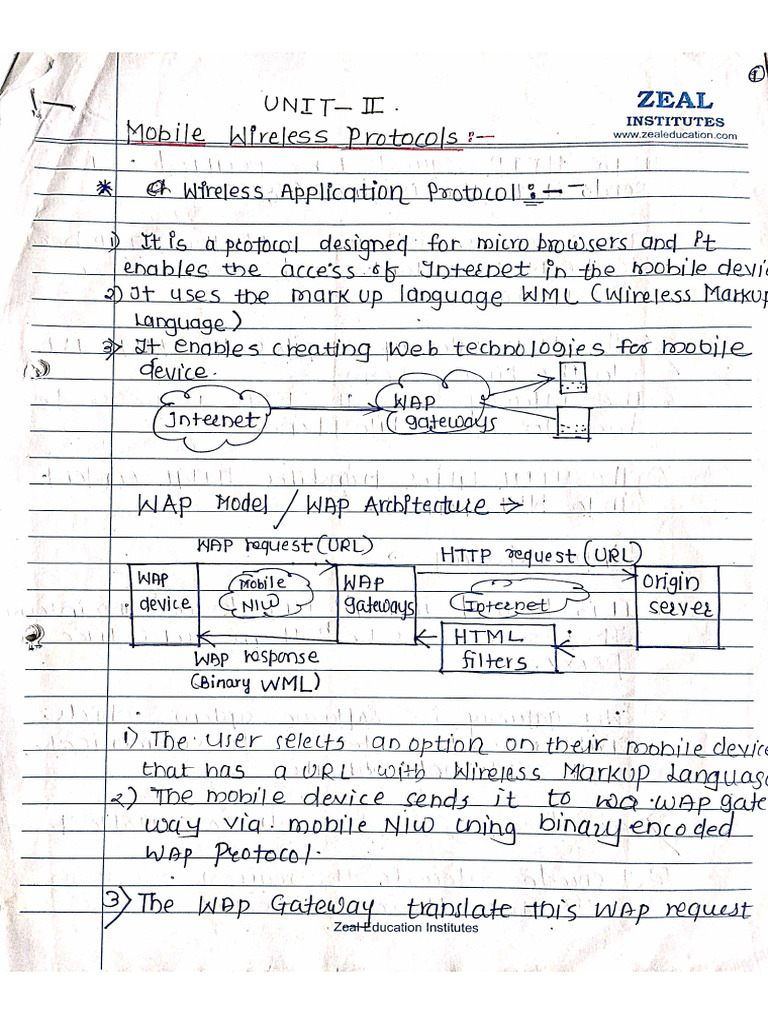 1
UNIT-II.
ZEAL
INSTITUTES
www.zealeducation.com
Mobile Wireless Protocols :-
* Wireless Application Protocol :-
1) It is a protocol designed for micro browsers and it
enables the access of Internet in the mobile devic
2) It uses the mark up language WML (Wireless Markup
Language)
3) It enables creating Web technologies for mobile
device.
Internet
WAP
gateways
WAP Model / WAP Architecture →
WAP request (URL)
HTTP request (URL)
WAP
device
Mobile
N/W
WAP
gateways
Internet
Origin
server
HTML
filters
WAP response
(Binary WML)
1) The user selects an option on their mobile device
that has a URL with Wireless Markup Language
2) The mobile device sends it to WAP gate
way via mobile N/W using binary encoded
WAP Protocol.
3) The WAP Gateway translate this WAP request
Zeal Education Institutes